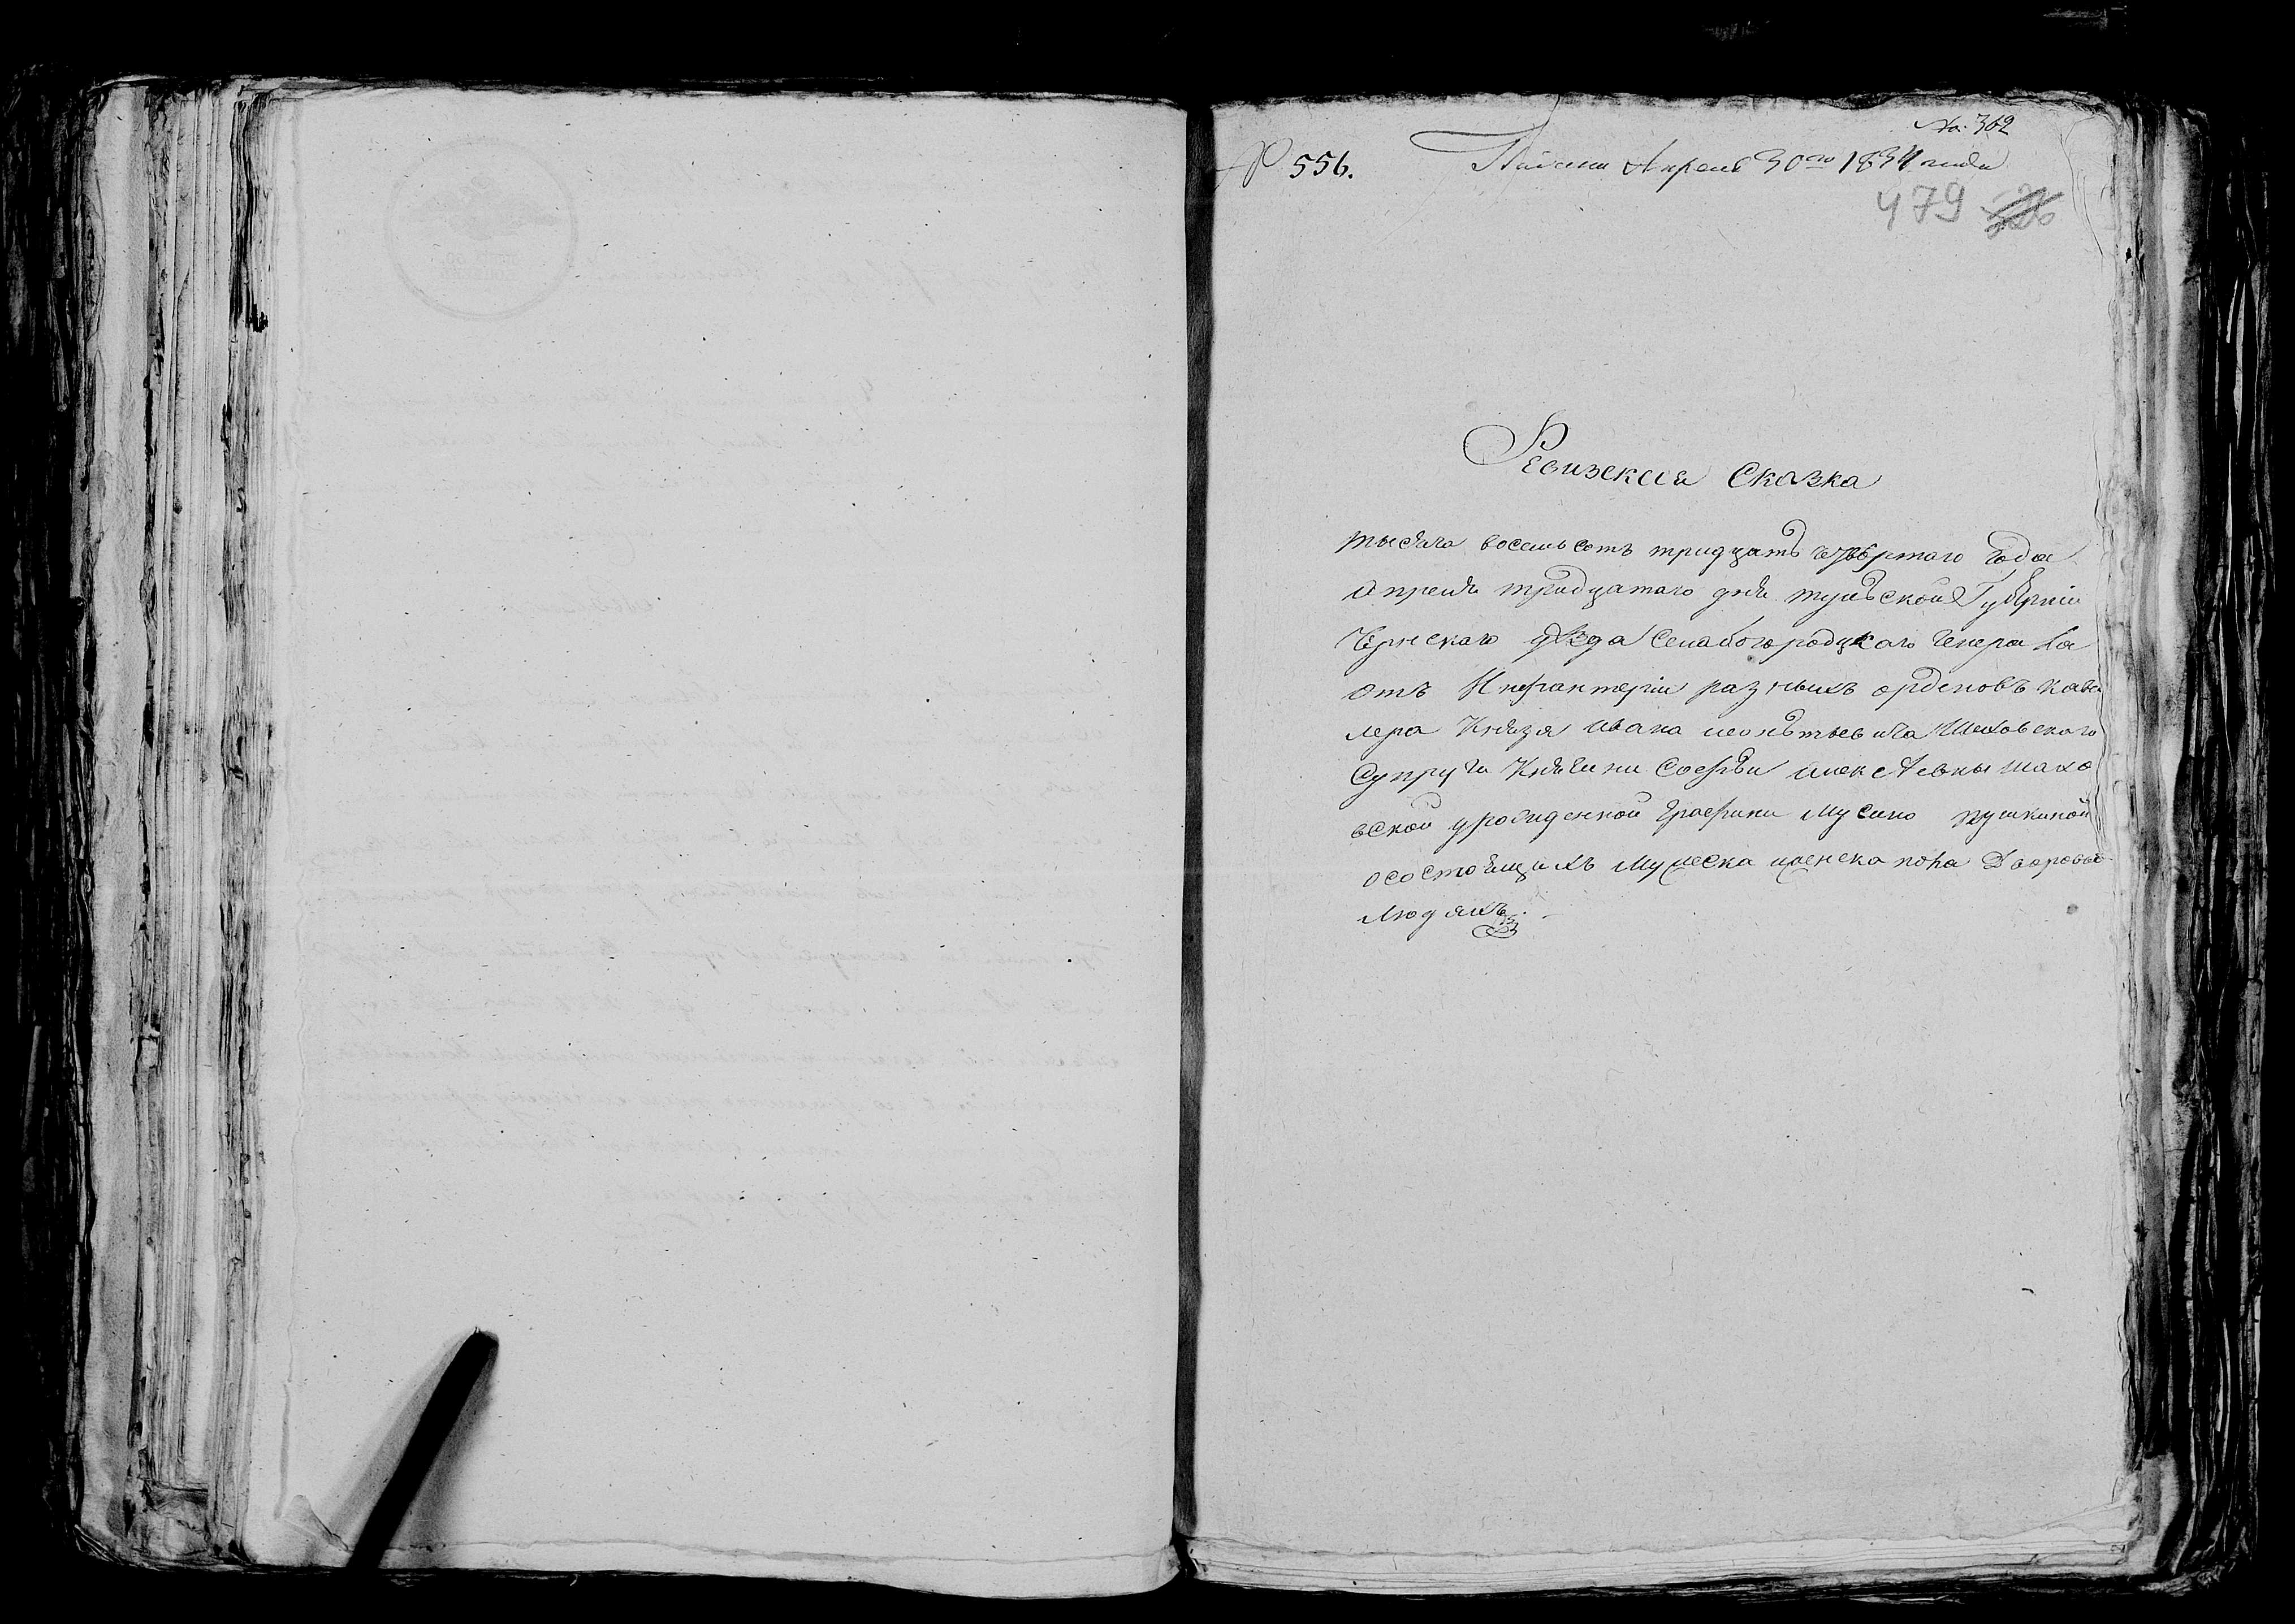 No. 362
№ 556. Подана Апреля 30го 1834 года
479
Ревизская Сказка
тысяча восемь сотъ тридцать четвертаго Года
апреля тридцатаго дня тульской Губернiи
Чернскаго уезда Села богородицкаго Генерала
отъ Инфантерiи разныхъ орденовъ кава
лера Князя ивана леонтьевича Шаховскаго
Супруги Княгини Софьи алексеевны шахо
вской урожденной Графини Мусино пушкиной
осостоящихъ мужеска иженска пола Дворовых
Людяхъ.